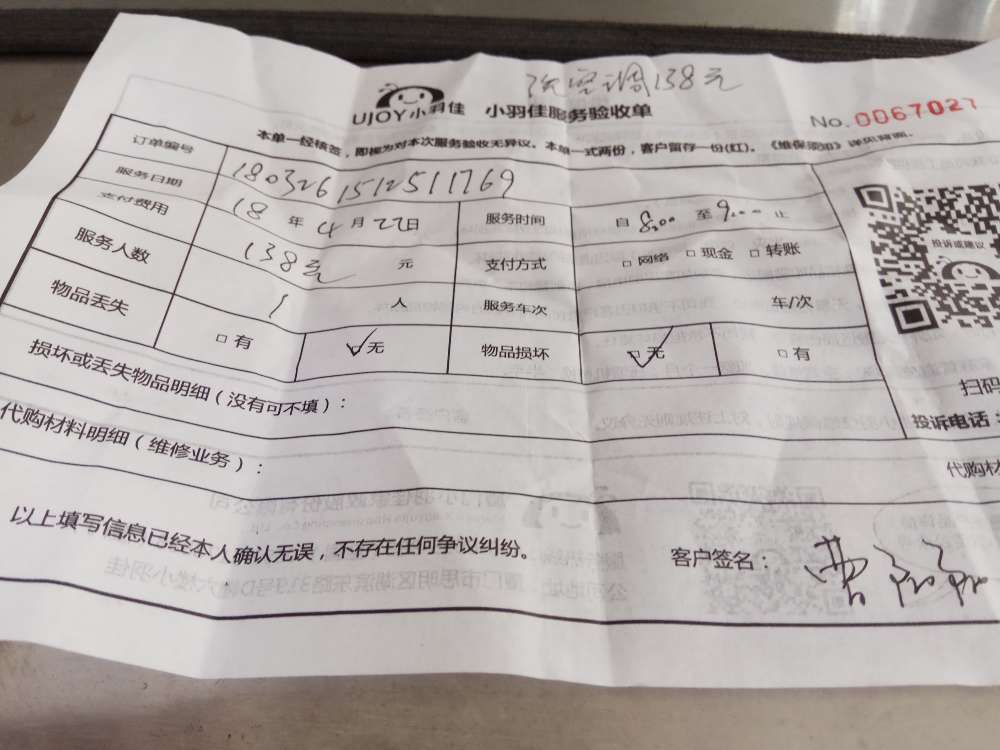 洗空调138元
UJOY小羽佳 小羽佳服务验收单
No. 0067027
本单一经核签，即视为对本次服务验收无异议。本单一式两份，客户留存一份(红)。《维保须知》详见背面。
订单编号 1803261512511769
服务日期 18 年 4 月 22日 服务时间 自 8:00 至 9:00 止
支付费用 138元 元 支付方式 □ 网络 □ 现金 □ 转账
服务人数 1 人 服务车次 车/次
物品丢失 □ 有 ☑ 无 物品损坏 ☑ 无 □ 有
投诉或建议
损坏或丢失物品明细（没有可不填）：
扫码
投诉电话：
代购材料明细（维修业务）：
代购材
以上填写信息已经本人确认无误，不存在任何争议纠纷。
客户签名：